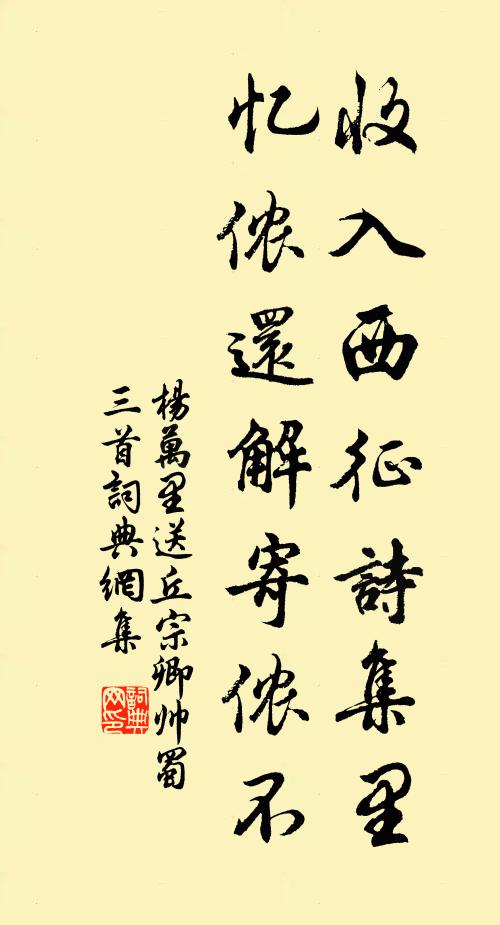 收入西征詩集里
忆侬還解寄侬不
楊萬里送丘宗卿帅蜀
三首詞典網集
詞典网印